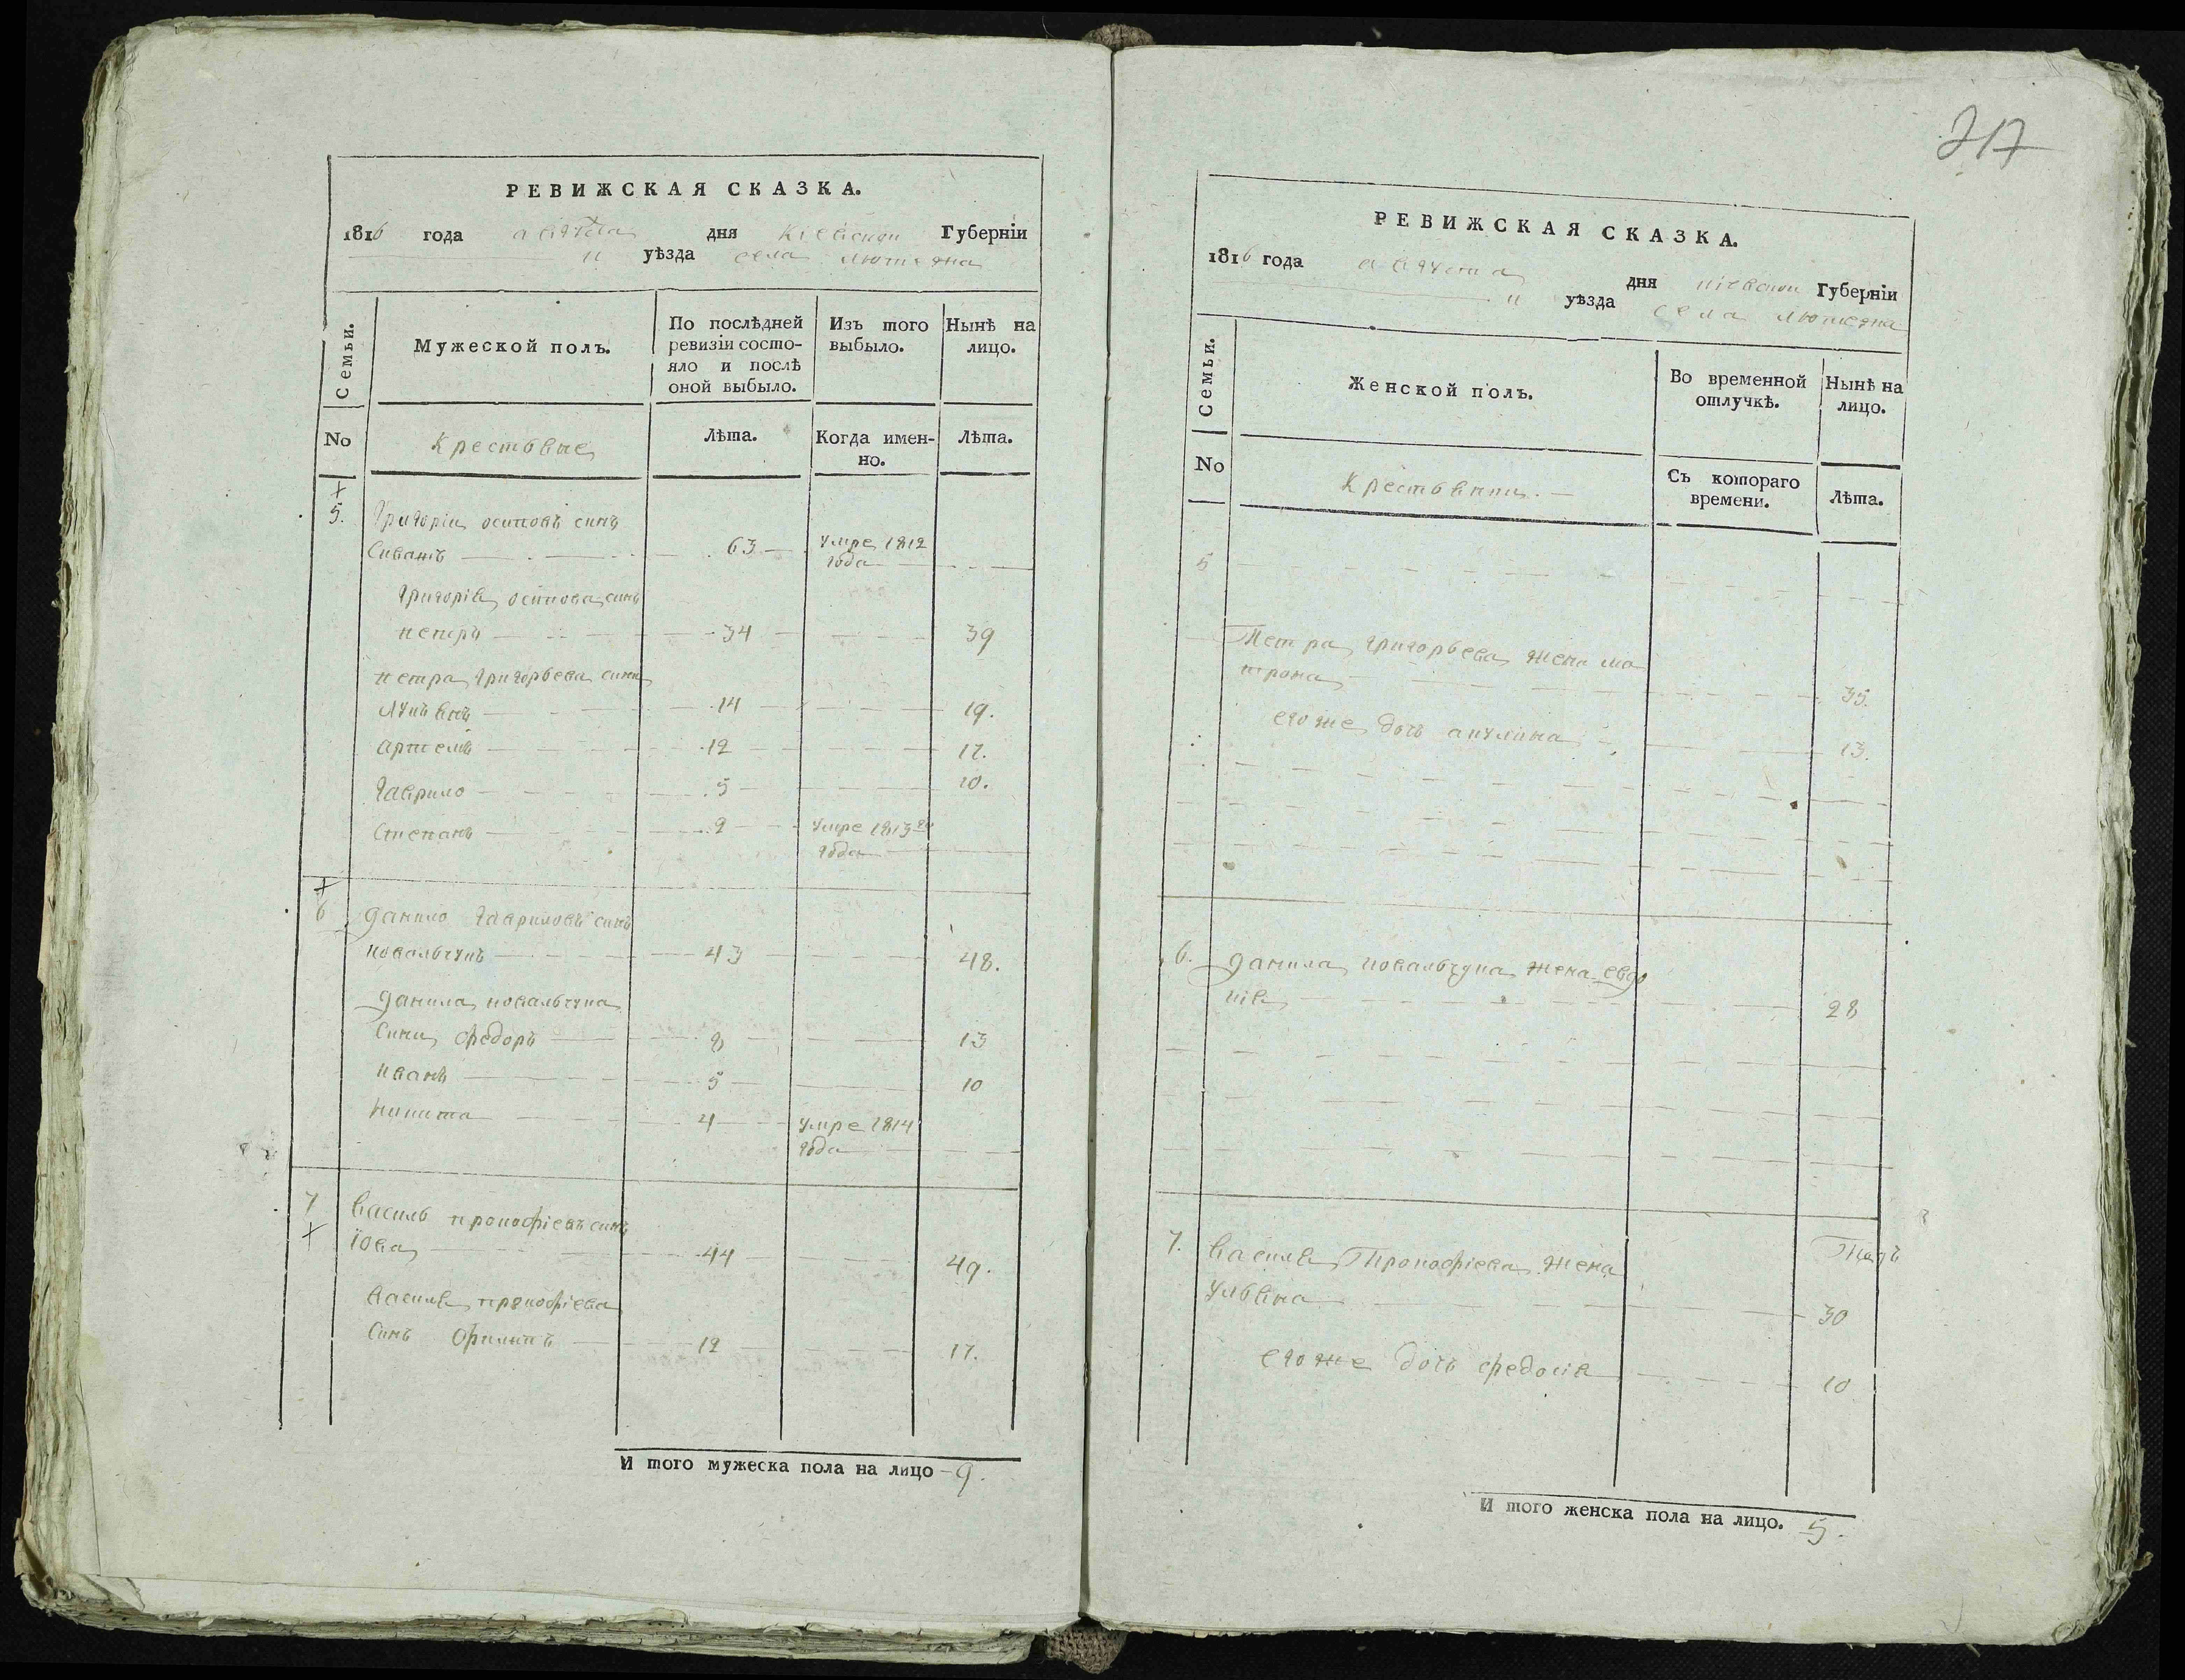 717
РЕВИЖСКАЯ СКАЗКА.
1816 года августа дня Киевской Губерніи
и уѣзда села Лютежа
Семьи.
Мужеской полъ.
По послѣдней ревизіи состо-
яло и послѣ
оной выбыло.
Изъ того выбыло.
Нынѣ на лицо.
No
Крестьяне
Лѣта.
Когда имен-
но.
Лѣта.
5.
Григорій осиповъ синъ
63
умре 1812
года
Григорія осипова синъ
петръ 34 39
петра Григорьева сини
лукъянъ 14 19.
артемъ 12 17.
гаврило 5 10.
Степанъ 2 умре 1813го
года
6 данило гавриловъ синъ
ковальчукъ 43 48.
данила ковальчука
сини федоръ 8 13
иванъ 5 10
никита 4 умре 1814
года
7 василь прокофіевъ синъ
44 49.
василя прокофіева
синъ филипъ 12 17.
И того мужеска пола на лицо 9.
РЕВИЖСКАЯ СКАЗКА.
1816 года августа дня киевской Губерніи
и уѣзда села лютежа
Семьи.
Женской полъ.
Во временной
отлучкѣ.
Нынѣ на
лицо.
No
Крестьянки.
Съ котораго
времени.
Лѣта.
5
Петра григорьева жена ма
трона 35.
егоже дочь акулина 13.
6. данила ковальчука жена евдо
кія 28
7. василя Прокофіева жена
ульяна 30
егоже дочь федосія 10
И того женска пола на лицо. 5.